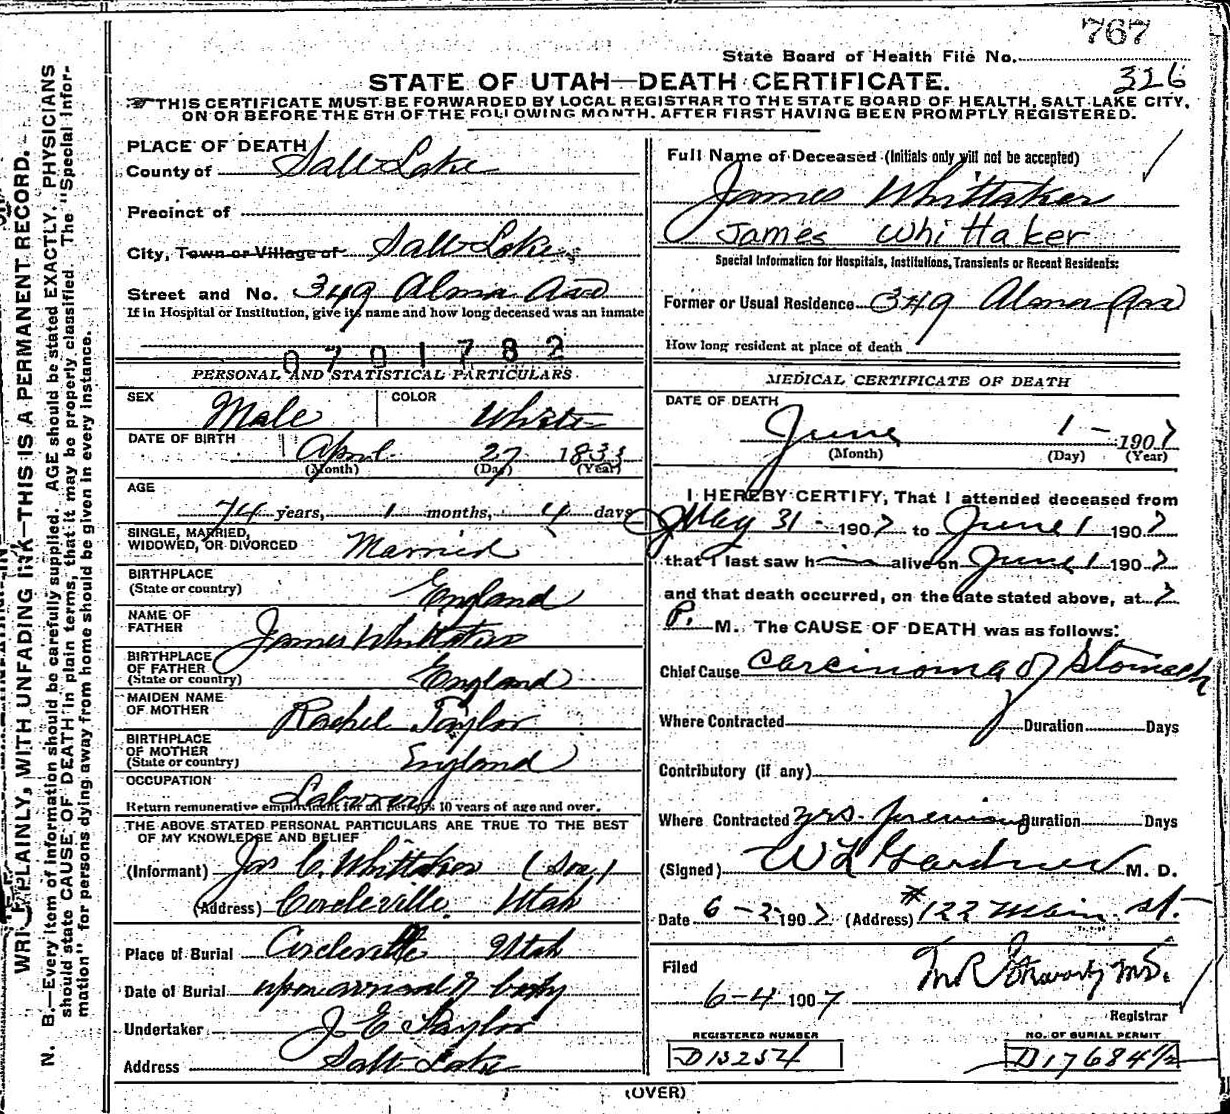 767
State Board of Health File No.
326
STATE OF UTAH—DEATH CERTIFICATE.
THIS CERTIFICATE MUST BE FORWARDED BY LOCAL REGISTRAR TO THE STATE BOARD OF HEALTH, SALT LAKE CITY,
ON OR BEFORE THE 5TH OF THE FOLLOWING MONTH, AFTER FIRST HAVING BEEN PROMPTLY REGISTERED.
PLACE OF DEATH
County of Salt Lake
Precinct of
City, Town or Village of Salt Lake
Street and No. 349 Alma Ave
If in Hospital or Institution, give its name and how long deceased was an inmate
0701782
PERSONAL AND STATISTICAL PARTICULARS
SEX Male COLOR White
DATE OF BIRTH April 27 1833
(Month) (Day) (Year)
AGE
74 years, 1 months, 4 days
SINGLE, MARRIED,
WIDOWED, OR DIVORCED Married
BIRTHPLACE
(State or country) England
NAME OF
FATHER James Whittaker
BIRTHPLACE
OF FATHER
(State or country) England
MAIDEN NAME
OF MOTHER Rachel Taylor
BIRTHPLACE
OF MOTHER
(State or country) England
OCCUPATION Laborer
Return remunerative employment for all persons 10 years of age and over.
THE ABOVE STATED PERSONAL PARTICULARS ARE TRUE TO THE BEST
OF MY KNOWLEDGE AND BELIEF
(Informant) Jas C. Whittaker (Son)
(Address) Circleville Utah
Place of Burial Circleville Utah
Date of Burial upon arrival of body
Undertaker J E Taylor
Address Salt Lake
Full Name of Deceased (Initials only will not be accepted)
James Whittaker
James Whittaker
Special Information for Hospitals, Institutions, Transients or Recent Residents:
Former or Usual Residence 349 Alma Ave
How long resident at place of death
MEDICAL CERTIFICATE OF DEATH
DATE OF DEATH
June 1 - 1907
(Month) (Day) (Year)
I HEREBY CERTIFY, That I attended deceased from
May 31 - 1907 to June 1 1907
that I last saw him alive on June 1 1907
and that death occurred, on the date stated above, at 7
P. M. The CAUSE OF DEATH was as follows:
Chief Cause carcinoma of Stomach
Where Contracted Duration Days
Contributory (if any)
Where Contracted yrs. previous Duration Days
(Signed) W L Gardner M. D.
Date 6-2-1907 (Address) #122 Main St.
Filed
6-4 1907 M R
Registrar
REGISTERED NUMBER NO. OF BURIAL PERMIT
D13254 D17684 1/2
(OVER)
WRITE PLAINLY, WITH UNFADING INK—THIS IS A PERMANENT RECORD.
N. B.—Every item of information should be carefully supplied. AGE should be stated EXACTLY. PHYSICIANS
should state CAUSE OF DEATH in plain terms, that it may be properly classified. The "Special Infor-
mation" for persons dying away from home should be given in every instance.